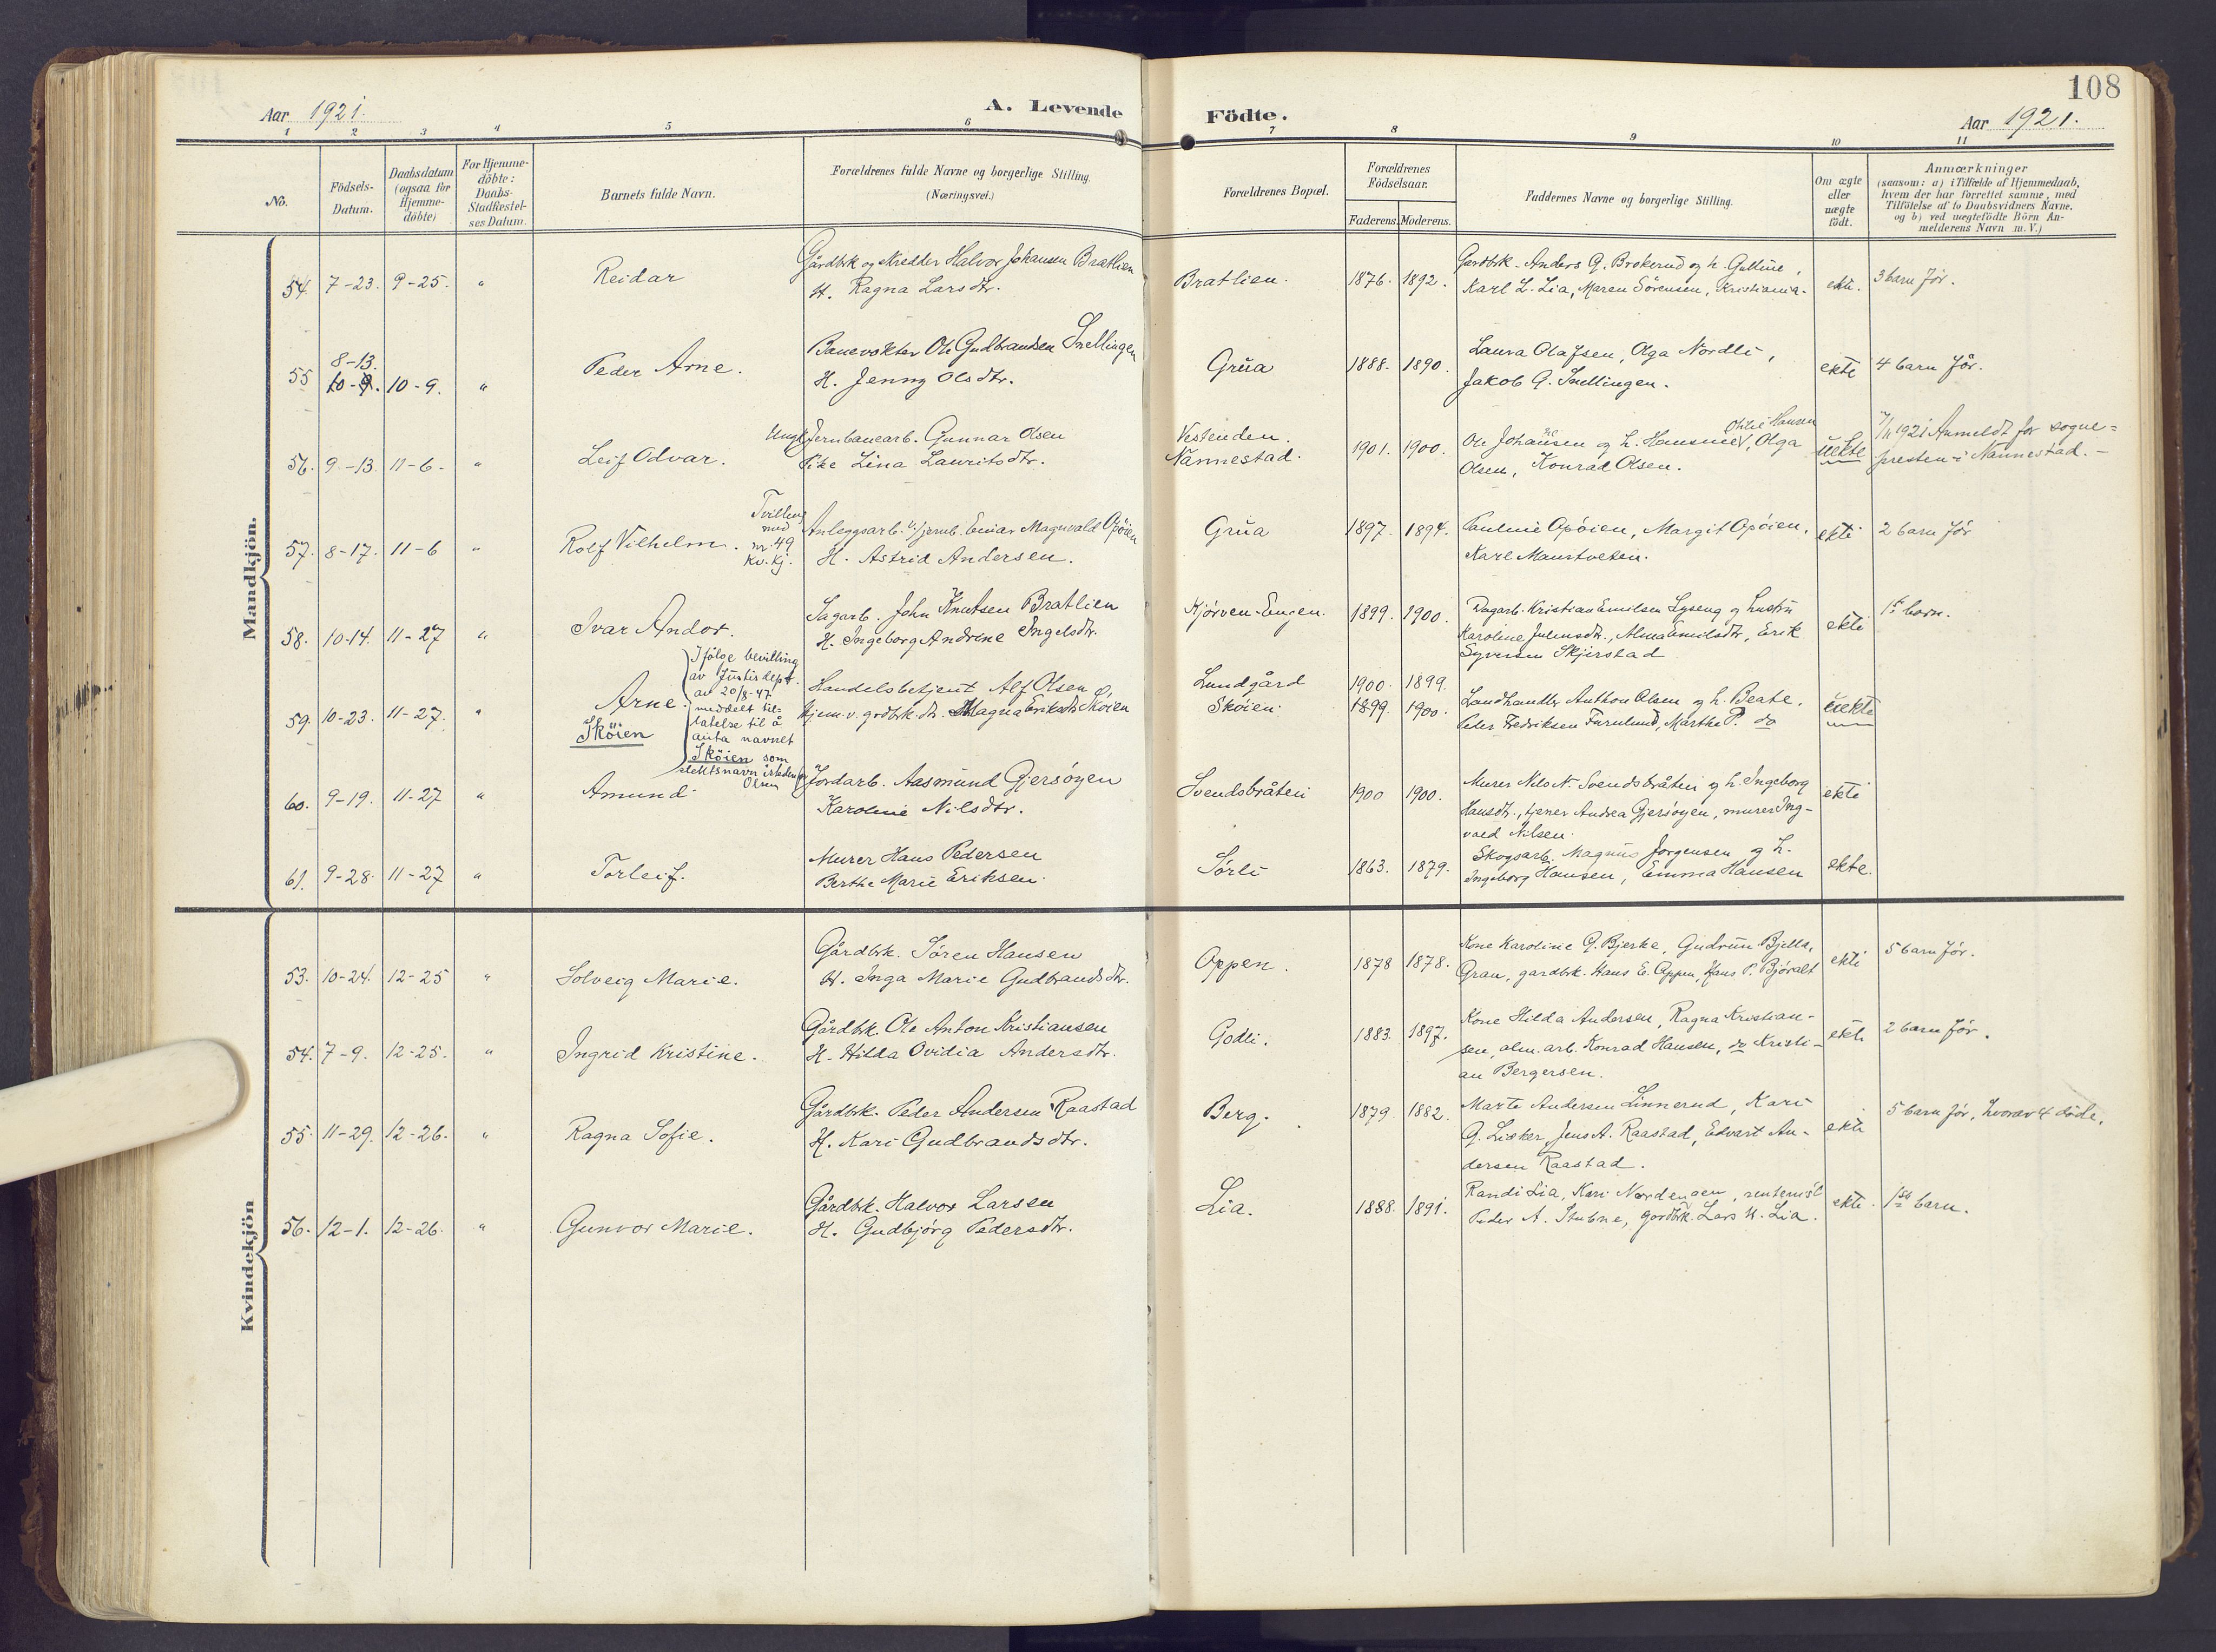 108
Aar 1921.
A. Levende Födte.
Aar 1921.
1 2 3 4 5 6 7 8 9 10 11
No.
Födsels-
Datum.
Daabsdatum
(ogsaa for
Hjemme-
döbte)
For Hjemme-
döbte:
Daabs-
Stadfæstel-
ses Datum.
Barnets fulde Navn.
Forældrenes fulde Navne og borgerlige Stilling.
(Næringsvei.)
Forældrenes Bopæl.
Forældrenes
Födselsaar.
Faderens. Moderens.
Faddernes Navne og borgerlige Stilling.
Om ægte
eller
uægte
födt.
Anmærkninger
(saasom: a) i Tilfælde af Hjemmedaab,
hvem der har forrettet samme, med
Tilföielse af to Daabsvidners Navne,
og b) ved uægtefödte Börn An-
melderens Navn m. V.)
Mandkjön.
54. 7-23. 9-25. " Reidar
Gårdbrk og Skredder Halvor Johansen Bratlien
H. Ragna Larsdtr.
Bratlien. 1876. 1892.
Gardbrk. Anders G. Brokerud og h. Gulline,
Karl L. Lia, Maren Sörensen, Kristiania.
ekte. 3 barn för.
55 8-13.
10-9. 10-9. " Peder Arne.
Banevokter Ole Gudbrandsen Snellingen
H. Jenny Olsdtr.
Grua 1888. 1890.
Laura Olafsen, Olga Nordli,
Jakob G. Snellingen.
ekte 4 barn før.
56. 9-13. 11-6. " Leif Odvar.
Ungk. Jernbanearb. Gunnar Olsen
Pike Lina Lauritsdtr.
Vestenden.
Nannestad. 1901. 1900.
Othilie Hansen
Ole Johansen og h. Hansine, Olga
Olsen, Konrad Olsen.
uekte
7/11 1921 Anmeldt for sogne-
presten i Nannestad.-
57. 8-17. 11-6 " Rolf Vilhelm.
Tvilling
med
nr. 49
kv. kj.
Anleggsarb. v/jernb. Einar Magnvald Opöien
H. Astrid Andersen.
Grua 1897. 1894.
Pauline Opöien, Margit Opöien,
Karl Maurtveten.
ekte 2 barn før
58. 10-14. 11-27 " Ivar Andor.
Sagarb. John Knutsen Bratlien
H. Ingeborg Andrine Ingelsdtr.
Kjörven-Engen. 1899. 1900.
Dagarb. Kristian Emilsen Lyseng og hustru
Karoline Juliusdtr., Alma Emilsdtr, Erik
Syversen Skjerstad
ekte 1st barn.
59. 10-23. 11-27. " Arne.
Sköien
Ifölge bevilling
av Justisdept.
av 20/8-47
meddelt til-
latelse til å
anta navnet
Sköien som
slektsnavn isteden for
Olsen
Handelsbetjent Alf Olsen og
hjem.v. grdbrk. dtr. Magna Eriksdtr Sköien
Lundgård
Sköien. 1900. 1899.
1899. 1900.
Landhandler Anthon Olsen og h. Beate,
Peder Fredriksen Furulund, Marthe P. do
uekte
60. 9-19. 11-27 " Amund
Jordarb. Aasmund Gjersöyen
Karoline Nilsdtr.
Svendsbråten 1900 1900.
Murer Nils N. Svendsbråten og h. Ingeborg
Hansdtr., tjener Andrea Gjersöyen, murer Ing-
vald Nilsen.
ekte
61. 9-28. 11-27 " Torleif.
Murer Hans Pedersen
Berthe Marie Eriksen.
Sørli 1863. 1879.
Skogsarb. Magnus Jørgensen og h.
Ingeborg Hansen, Emma Hansen
ekte.
Kvindekjön
53. 10-24. 12-25 " Solveig Marie.
Gårdbrk. Sören Hansen
H. Inga Marie Gudbrandsdtr.
Oppen. 1878 1878.
Kone Karoline G. Bjerke, Gudrun Bjella,
Gran, gardbrk. Hans E. Oppen, Hans P. Björalt
ekte 5 barn før.
54. 7-9. 12-25. " Ingrid Kristine.
Gårdbrk. Ole Anton Kristiansen
H. Hilda Ovidia Andersdtr.
Godli. 1883. 1897.
Kone Hilda Andersen, Ragna Kristian-
sen, alm. arb. Konrad Hansen, do Kristi-
an Bergersen.
ekte 2 barn før.
55. 11-29. 12-26. " Ragna Sofie.
Gårdbrk. Peder Andersen Raastad
H. Kari Gudbrandsdtr.
Berg. 1879. 1882.
Marte Andersen Linnerud, Kari
G. Lisker, Jens A. Raastad, Edvart An-
dersen Raastad.
ekte 5 barn før, hvorav 4 döde.
56. 12-1. 12-26. " Gunvor Marie.
Gårdbrk. Halvor Larsen
H. Gudbjörg Pedersdtr.
Lia. 1888. 1891.
Randi Lia, Kari Nordengen,
Peder A. Stubne, gardbrk. Lars H. Lia.
ekte. 1ste barn.